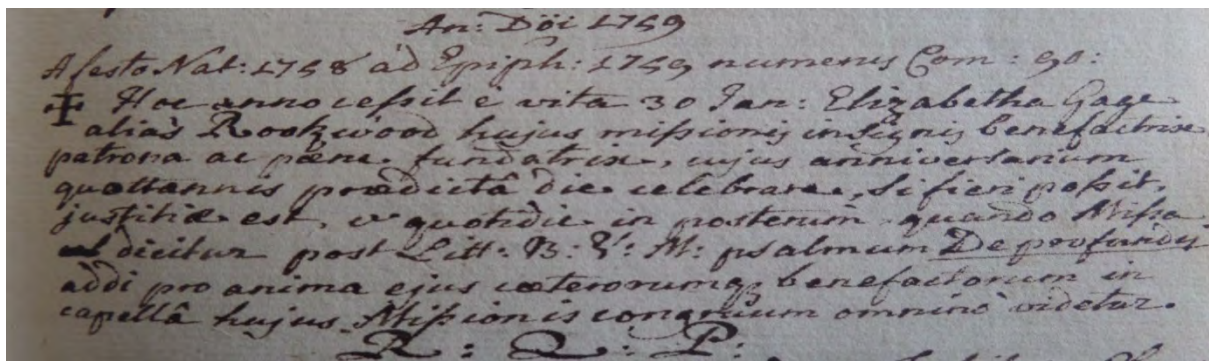 An: Dõi 1759
A festo Nat: 1758 ad Epiph: 1759 numerus Com: 90:
Hoc anno cessit è vita 30 Jan: Elizabetha Gage
aliàs Rookwood hujus missionis insignis benefactrix
patrona ac pæne fundatrix, cujus anniversarium
quottannis prædictâ die celebrare, si fieri possit,
justitiæ est, & quotidie in posterum quando Missa
dicitur post Litt: B: V: M: psalmum De profundis
addi pro anima ejus cæterorumq benefactorum in
capellâ hujus Missionis congruum omninò videtur.
R: Q: P: